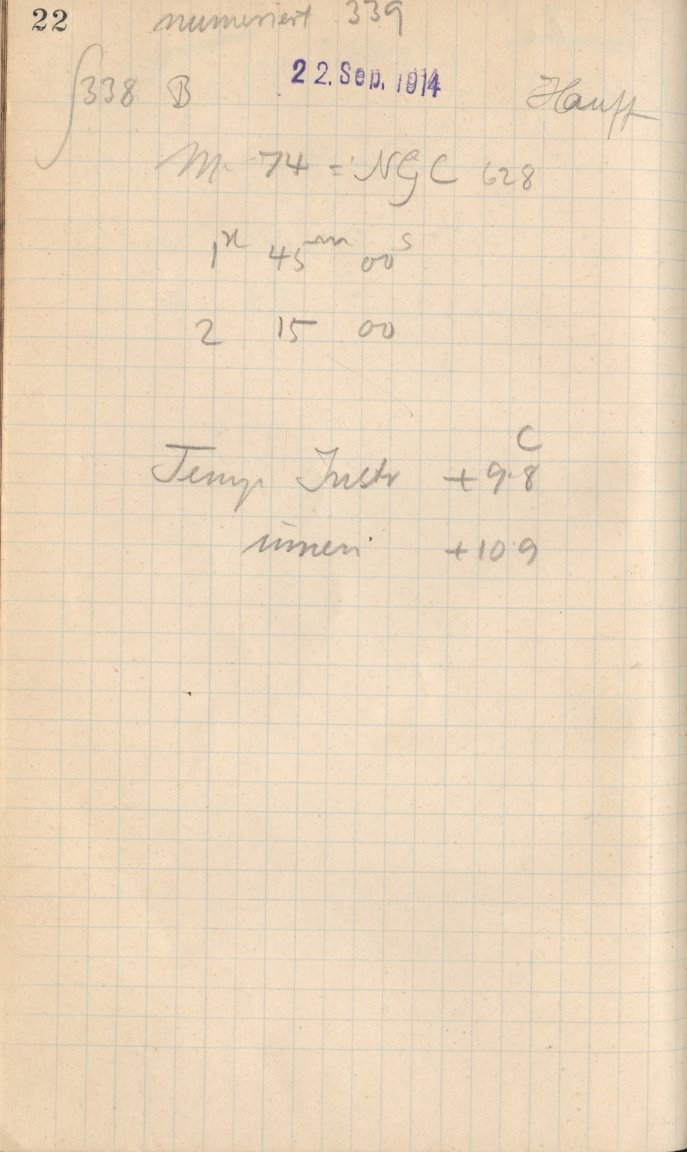 22 numeriert 339
338 B 22. Sep. 1914 Hauff
M. 74 = NGC 628
1h 45m 00s
2 15 00
C
Temp. Instr +9.8
innen +10.9